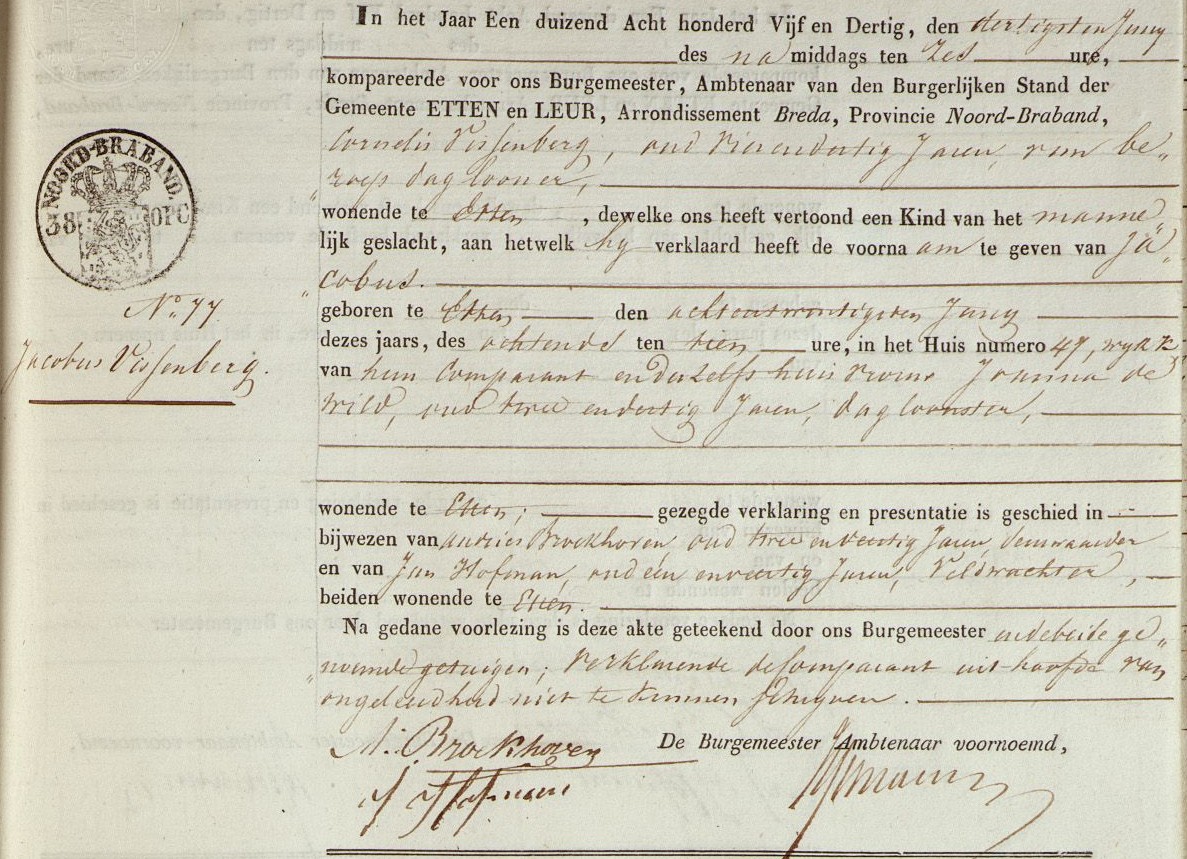 In het Jaar Een duizend Acht honderd Vijf en Dertig, den dertigsten Juny
des na middags ten zes ure,
kompareerde voor ons Burgemeester, Ambtenaar van den Burgerlijken Stand der
Gemeente ETTEN en LEUR, Arrondissement Breda, Provincie Noord-Braband,
Cornelis Vissenberg, oud vierendertig Jaren, van be„
„roep daglooner,
NOORD-BRABAND.
38 OPC
wonende te Etten, dewelke ons heeft vertoond een Kind van het manne
lijk geslacht, aan hetwelk hy verklaard heeft de voorna am te geven van Ja„
„cobus.
No. 77
geboren te Etten den achtentwintigsten Juny
dezes jaars, des ochtends ten tien ure, in het Huis numero 47, wyk K
Jacobus Vissenberg.
van hem Comparant en deszelfs huisvrouw Joanna de
Wild, oud twee endertig Jaren, dagloonster,
wonende te Etten; gezegde verklaring en presentatie is geschied in
bijwezen van Andries Broekhoven, oud twee enveertig Jaren,
en van Jan Hofman, oud een enveertig Jaren, Veldwachter,
beiden wonende te Etten.
Na gedane voorlezing is deze akte geteekend door ons Burgemeester en de beide ge„
„noemde getuigen; verklarende de Comparant uit hoofde van
ongeleerdheid niet te kunnen schryven.
A. Broekhoven
De Burgemeester Ambtenaar voornoemd,
J Hofman